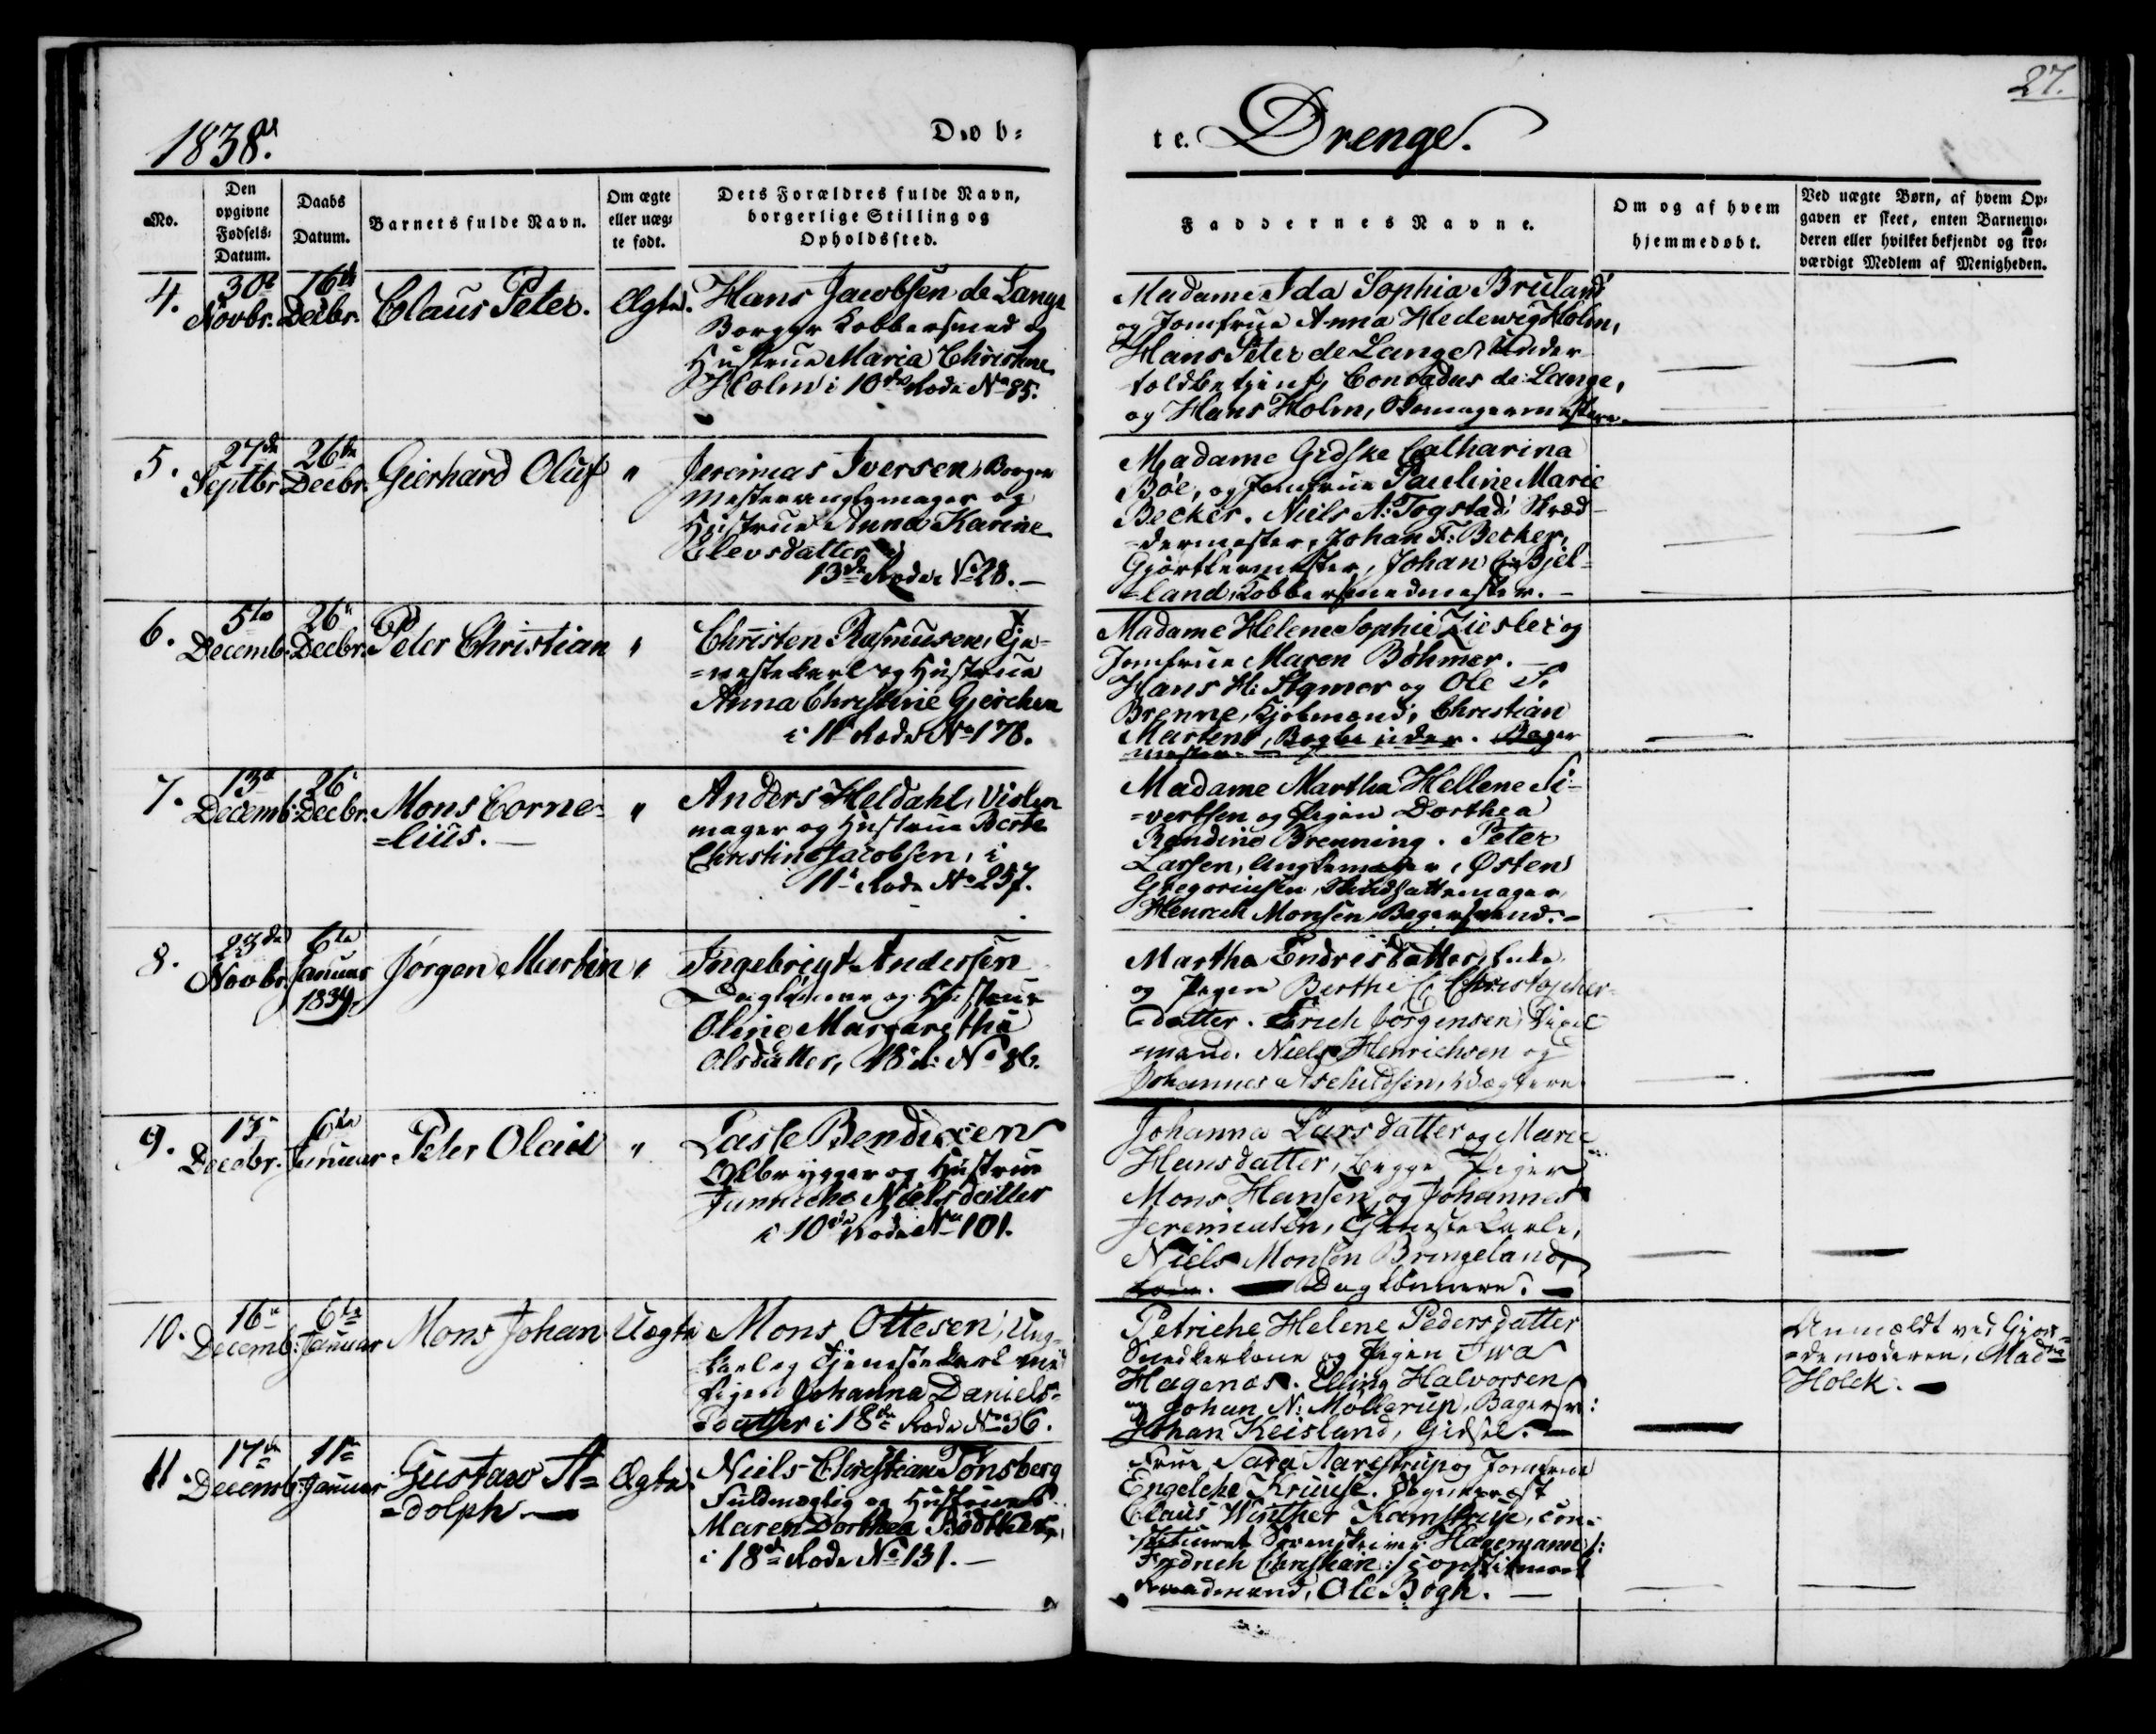 27.
1838.
Døb=
te. Drenge.
No.
Den opgivne Fødsels=Datum.
Daabs Datum.
Barnets fulde Navn.
Om ægte eller uæg=te født.
Dets Forældres fulde Navn, borgerlige Stilling og Opholdssted.
Faddernes Navne.
Om og af hvem hjemmedøbt.
Ved uægte Børn, af hvem Op=gaven er skeet, enten Barnemo=deren eller hvilket bekjendt og tro=værdigt Medlem af Menigheden.
4. 30 Novbr. 16de Decbr. Claus Peter. Ægte.
Hans Jacobsen de Lange
Borger Kobbersmed og
Hustrue Maria Christine
Holm i 10de Rode No 85.
Madame Ida Sophia Bruland
og Jomfrue Anna Hedewig Holm,
Hans Peter de Lange Under
toldbetjent, Conradus de Lange,
og Hans Holm,
5. 27de Septbr. 26de Decbr. Gierhard Oluf "
Jeremias Iversen, Borger
Mester og
Hustrue Anna Karine
Elevsdatter i
13de Rode No 28. —
Madame Gidske Catharina
Böe, og Jomfrue Pauline Marie
Becker. Niels A: Togstad, Skræd
=dermester, Johan F: Becker,
Gjörtlermester, Johan C. Bjel=
=land Kobbersmedmester. —
6. 5te Decemb: 26 Decbr. Peter Christian "
Christen Rasmusen, Tje=
=nestekarl og Hustrue
Anna Christine Gjerchen
i 11 Rode No 178.
Madame Helene Sophie Ziesler og
Jomfrue Maren Böhmer. —
Hans H: Stamer og Ole S.
Brenne, Kjöbmænd, Christian
Martens, Bogbinder.
7. 13 Decemb: 26 Decbr. Mons Corne=
=lius. — "
Anders Heldahl, Violin
mager og Hustrue Berte
Christine Jacobsen, i
11 Rode No 257.
Madame Martha Hellene Si=
=vertsen og Pigen Dorthea
Randine Brenning. Peter
Larsen, Östen
Gregoriusen,
Henrich Monsen, Bagersvend. —
8. 23de Novbr. 6te Januar 1839. Jörgen Martin "
Ingebrigt Andersen
Daglönner og Hustrue
Oline Margaretha
Olsdatter, 18 R: No 86.
Martha Endrisdatter, Enke
og Pigen Berthe C Christopher
=datter. Erich Jörgensen,
=mand. Niels Henrichsen og
Johannes Aschildsen, Vægtere
9. 13 Decbr. 6te Januar Peter Olai "
Lasse Bendixen
Ölbrygger og Hustrue
Janniche Nielsdatter
i 10de Rode No 101.
Johanna Larsdatter og Marie
Hansdatter, begge Piger
Mons Hansen og Johannes
Jeremiasen, Tjenestekarle,
Niels Monsen Bringeland,
Daglönnere. —
10. 16 Decemb: 6te Januar Mons Johan Uægte
Mons Ottesen, Ung=
karl og Tjenestekarl med
Pigen Johanna Daniels=
=datter i 18de Rode No 36.
Petriche Helene Pedersdatter
Snedkerkone og Pigen Iwa
Hagenas. Elling Halvorsen
og Johan N: Möllerup, Bagersv:
Johan Keisland, Gidsel. —
Anmeldt ved Gjor=
=demoderen, Mad
Holck. —
11. 17de Decemb: 11 Januar Gustaw A=
=dolph. — Ægte.
Niels Christian Tönsberg
Fuldmægtig og Hustrue
Maren Dorthea Bödtker,
i 18de Rode No 131. —
Frue Sara Aarestrup og Jomfrue
Engelche Kruuse. Sognepræst
Claus Winther Kamstrup, con=
=stitueret Sorenskriver Hagemann /:
Fredrich Christian :/ constitueret
Ole Bögh. —